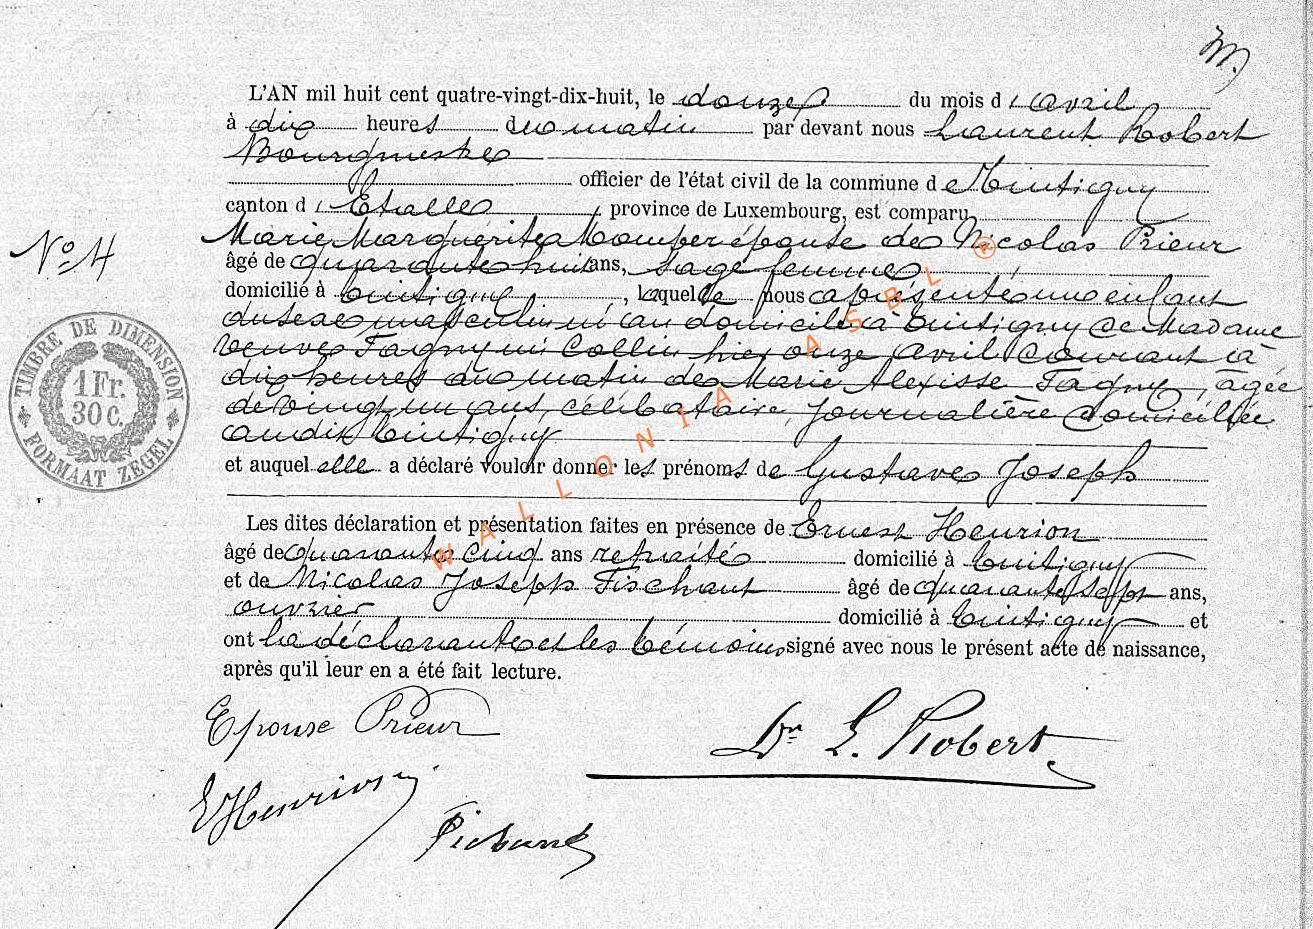 m.
L'AN mil huit cent quatre-vingt-dix-huit, le douze du mois d'avril
à dix heures du matin par devant nous Laurent Robert
Bourgmestre
officier de l'état civil de la commune de Tintigny
canton d'Etalle, province de Luxembourg, est comparu
Marie Marguerite épouse de Nicolas Prieur
N° 4
âgé de quarante huit ans, sage femme
domicilié à Tintigny, laquelle nous a présenté un enfant
du sexe masculin né au domicile à Tintigny de Madame
veuve Fagny née Collin hier onze avril courant à
dix heures du matin de Marie Alexisse Fagny, âgée
de vingt un ans, célibataire, journalière domiciliée
audit Tintigny
et auquel elle a déclaré vouloir donner les prénoms de Gustave Joseph
Les dites déclaration et présentation faites en présence de Ernest Henrion
âgé de quarante cinq ans retraité domicilié à Tintigny
et de Nicolas Joseph âgé de quarante sept ans,
ouvrier domicilié à Tintigny et
ont la déclarante et les témoins signé avec nous le présent acte de naissance,
après qu'il leur en a été fait lecture.
Epouse Prieur
Dr L. Robert
EHenrion
TIMBRE DE DIMENSION
1 Fr.
30 C.
FORMAAT ZEGEL
WALLONIA ASBL ®